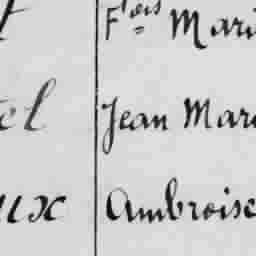 t Fçois Mari
el Jean Mar
ux Ambroise